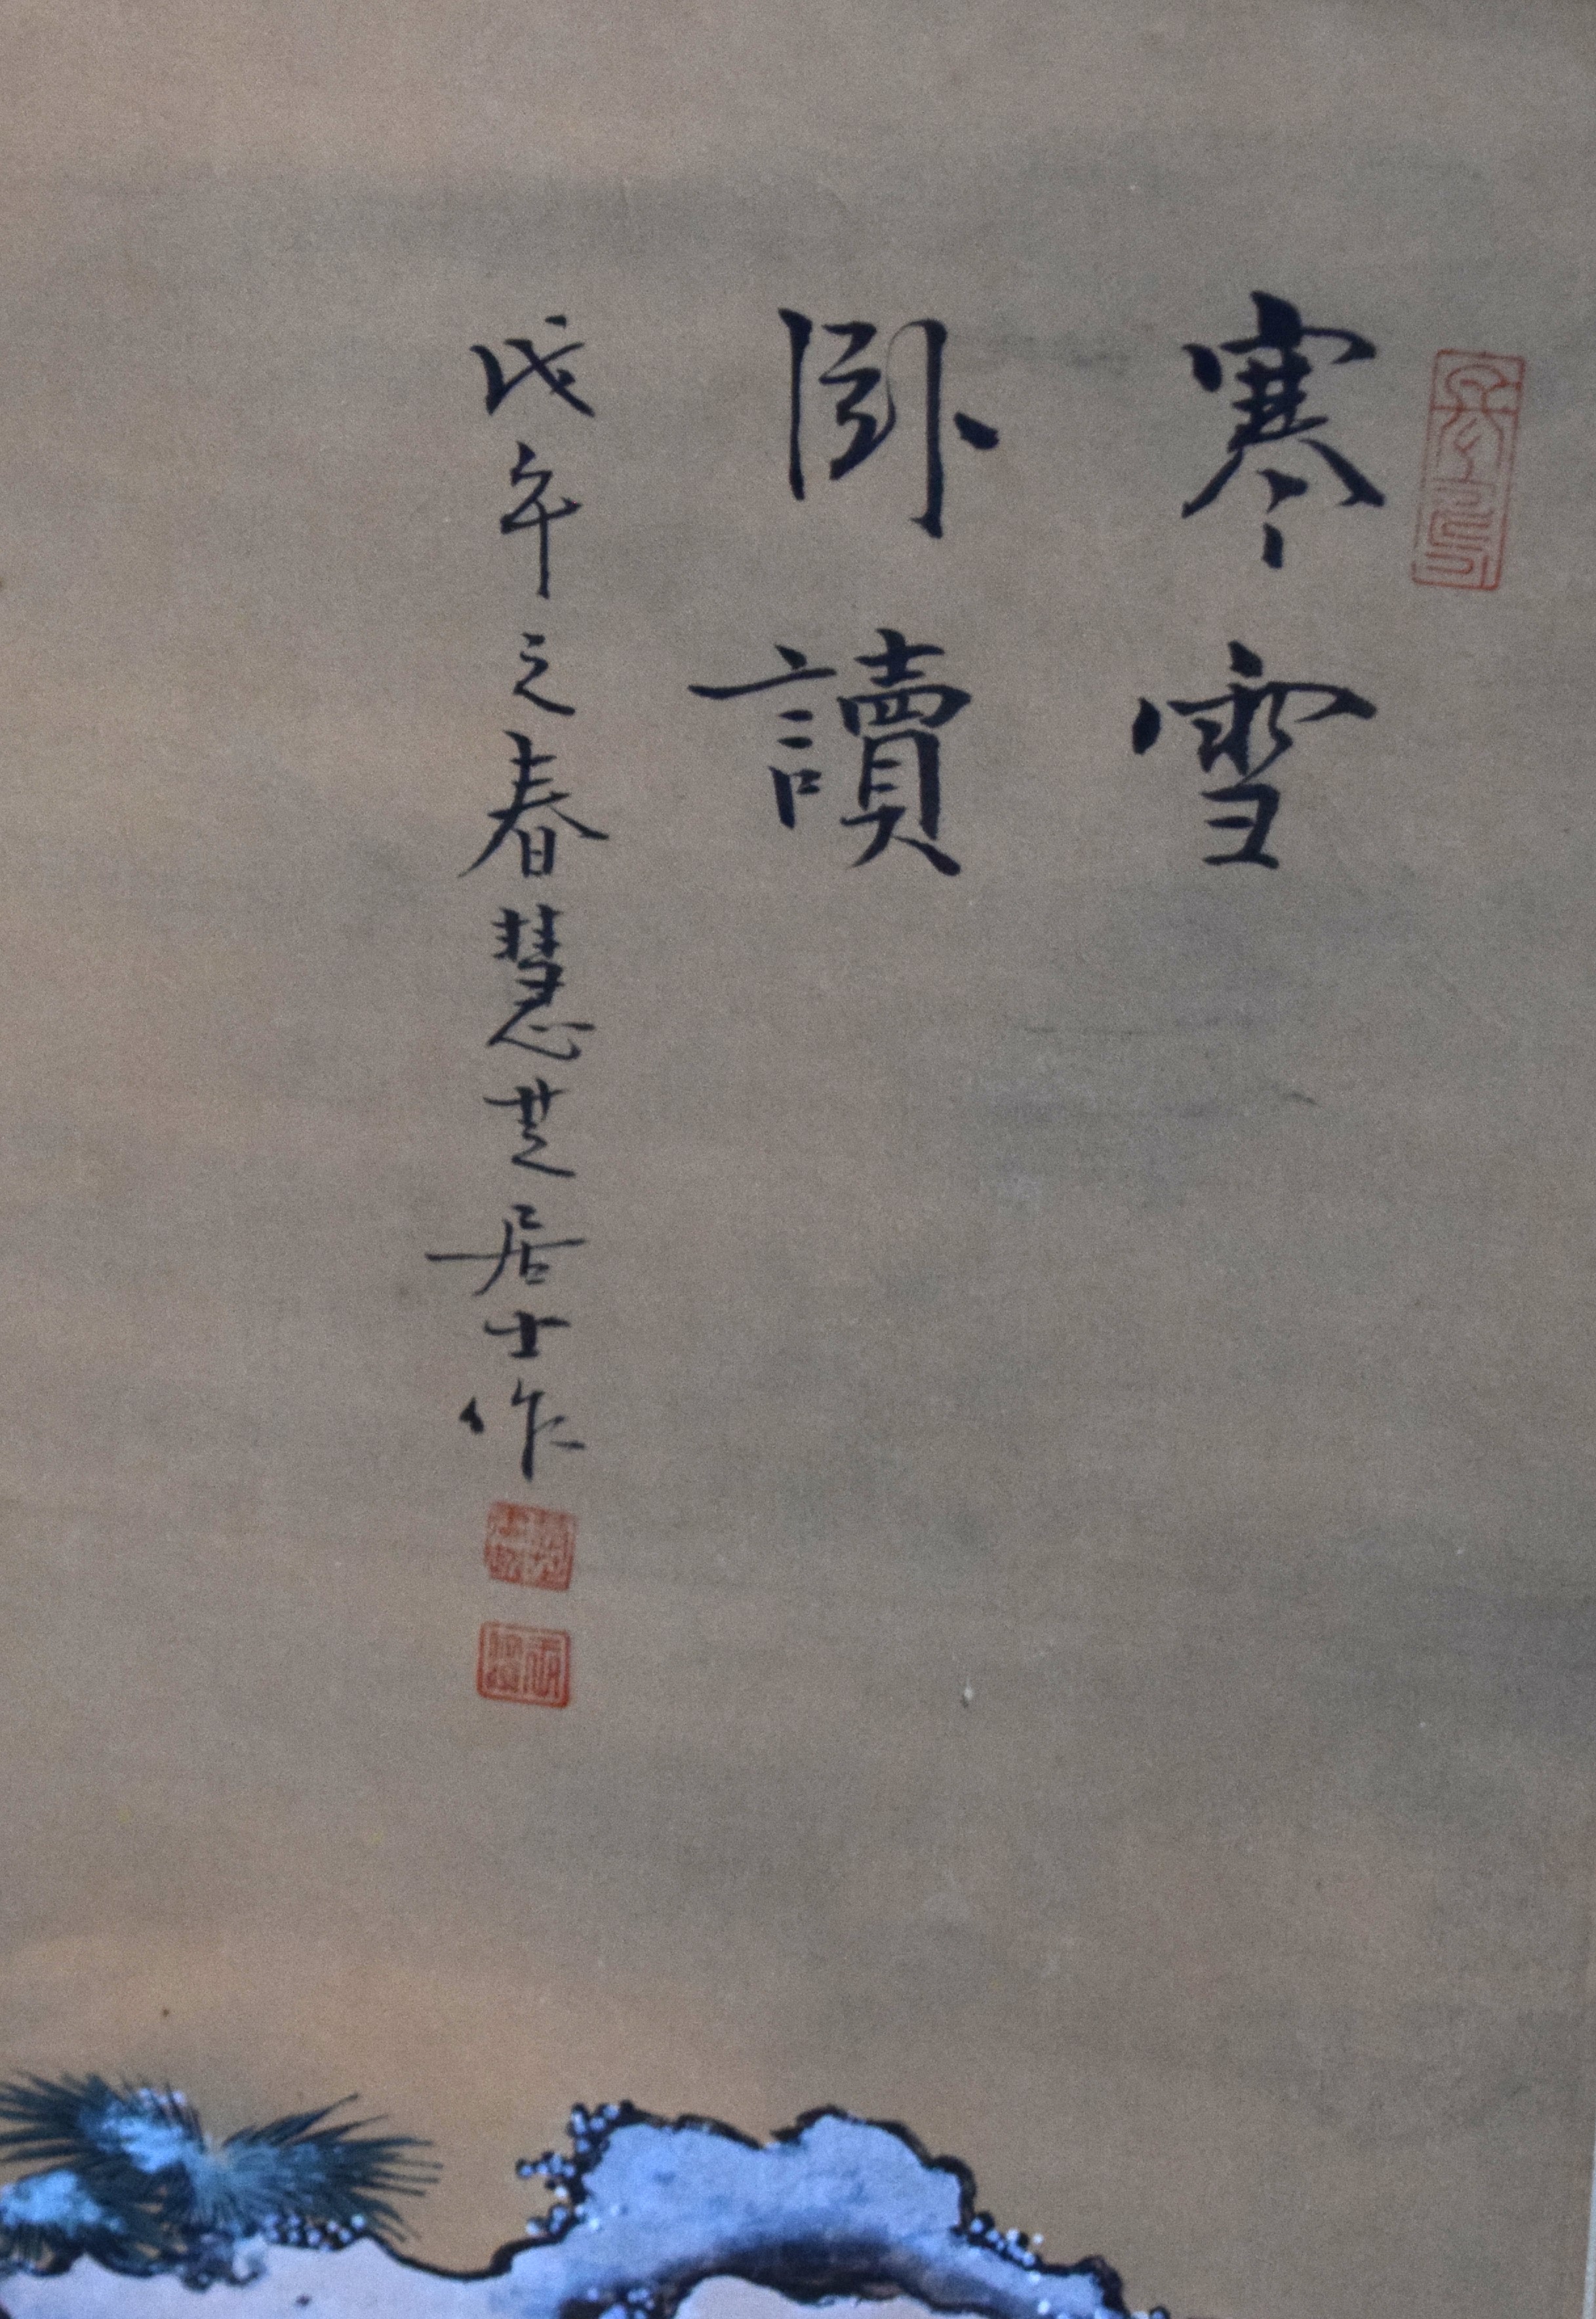 寒雪
臥讀
戊午之春慧芝居士作